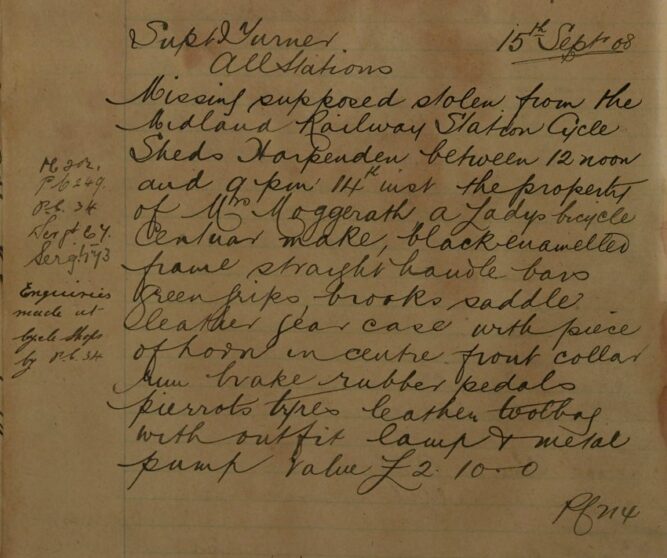 Supt Turner
15th Sept 08
All Stations
Missing supposed stolen from the
Midland Railway Station Cycle
Sheds Harpenden between 12 noon
and 9 pm 14th inst the property
of Mrs Moggerath a Ladys bicycle
Centuar make, black enamelled
frame straight handle bars
Green grips, brooks saddle
leather gear case with piece
of horn in centre front collar
rim brake rubber pedals
pierrots tyres leather toolbag
with outfit lamp & metal
pump value £2.10-0
P.C. 249.
P.C. 34
Sergt 67.
Sergt 173
Enquiries
made at
cycle shops
by P.C. 34